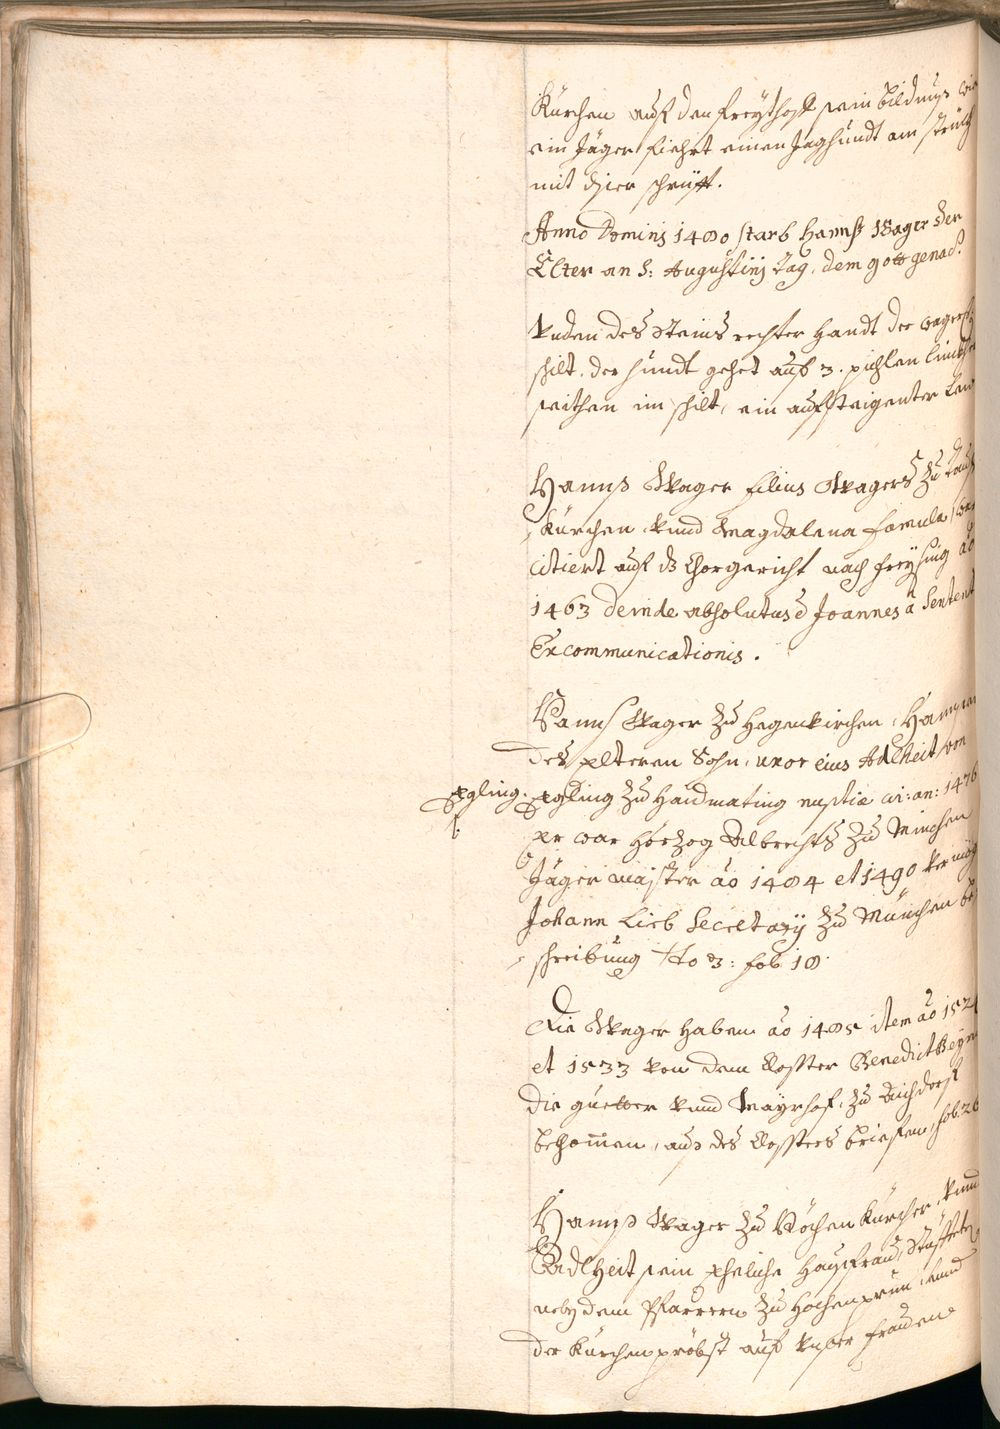 Kürchen auf den freythoff sein bildnus wie
ein Jäger fiehrt einen Jaghundt am strückh
mit diser schrüfft.
Anno Dominj 1480 starb Hannß Wager der
Elter an S: Augustinj Tag, dem gott genad.
Vnden des Stains rechter Handt der wager
schilt, der hundt gehet auf 3. pichlen linckher
seithen im schilt, ein aufsteigenter Lew
Hannß Wager filius Wagers zu
Kürchen vnnd Magdalena famula, war
citiert auf dz Chorgericht nach freysing ao
1463 deinde absolutus è Joannes à Sentent
Excommunicationis.
Hannß Wager zu Hegenkirchen, Hannsen
des elteren Sohn, uxor eius Adlheit von
Egling. Egling zu Haidmating nuptiæ cir: an: 1476
er war Hörzog Albrechts zu Minchen
Jägermaister ao 1484 et 1490 vermög
Johann Lieb Secretarÿ zu München be
schreibung tto 3: fol. 18.
Die Wager haben ao 1485 item ao 152
et 1533 von dem Closter Benedict Beyrn
die guetter vnnd Mayrhof, zu Aichdorf
bekomen, aus des Closters briefen, fol. 26
Hannß Wager zu Köchenkürcher, vnnd
Adlheit sein eheliche haußfrau, Stüfften
neb dem Pfarrern zu Hochenprun, vnnd
der Kürchenpröbst auf vnser frauen